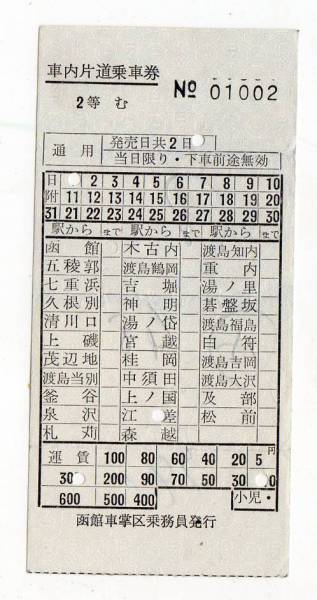 車内片道乗車券
№ 01002
2等 む
通用 発売日共2日
当日限り・下車前途無効
日 2 3 4 5 6 7 8 9 10
附 11 12 13 14 15 16 17 18 19 20
31 21 22 23 24 25 26 27 28 29 30
駅から まで 駅から まで 駅から まで
函館 木古内 渡島知内
五稜郭 渡島鶴岡 重内
七重浜 吉堀 湯ノ里
久根別 神明 碁盤坂
清川口 湯ノ岱 渡島福島
上磯 宮越 白符
茂辺地 桂岡 渡島吉岡
渡島当別 中須田 渡島大沢
釜谷 上ノ国 及部
泉沢 江差 松前
札苅 森越
運賃 100 80 60 40 20 5円
30 200 90 70 50 30 0
600 500 400 小児・
函館車掌区乗務員発行